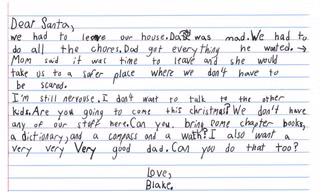 Dear Santa,
we had to leave our house. Dad was mad. We had to
do all the chores. Dad got everything he wanted. →
Mom said it was time to leave and she would
take us to a safer place where we don't have to
be scared.
I'm still nervouse. I don't want to talk to the other
kids. Are you going to come this christmas? We don't have
any of our stuff here. Can you bring some chapter books,
a dictionary, and a compass and a wath? I also want a
very very very good dad. Can you do that too?
Love,
Blake,